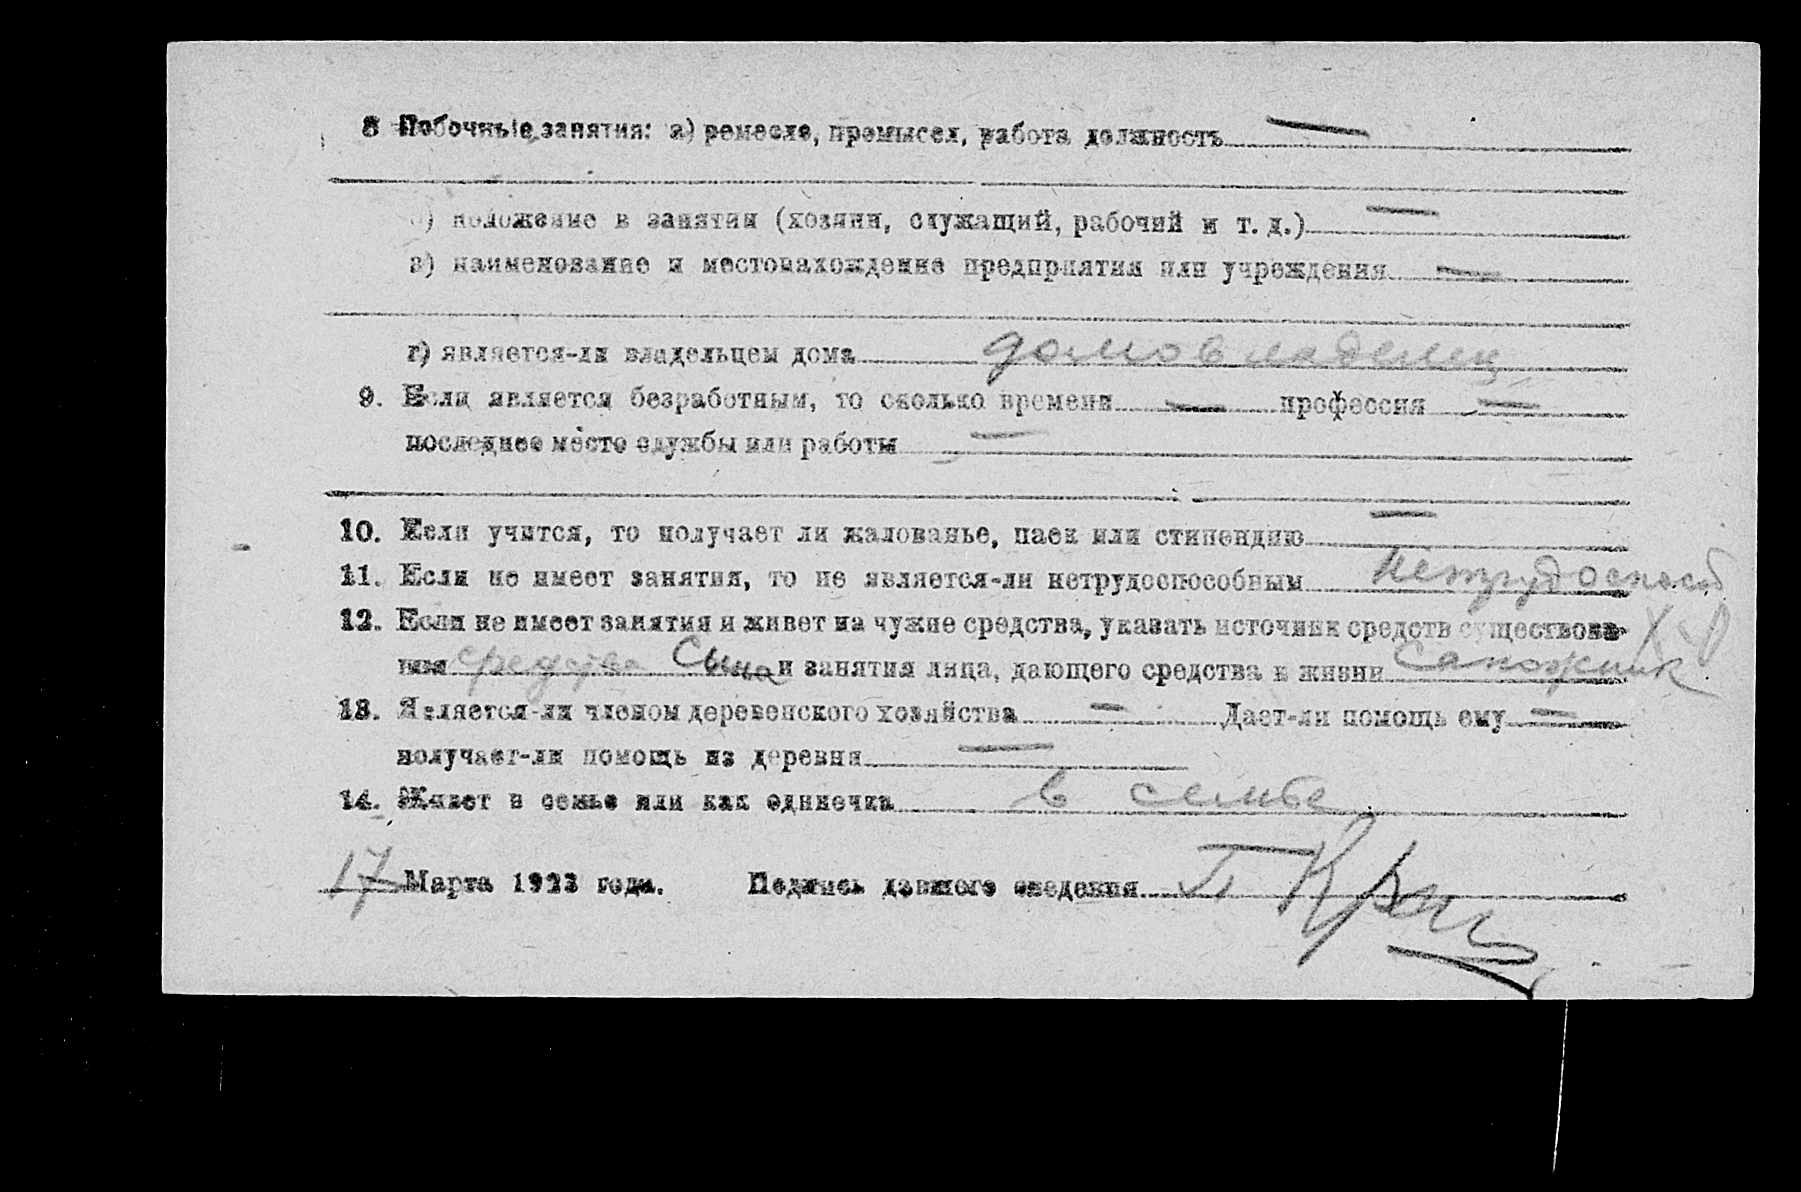 8 Побочные занятия: а) ремесло, промысел, работа должность —
б) положение в занятии (хозяин, служащий, рабочий и т. д.) —
в) наименование и местонахождение предприятия или учреждения —
г) является-ли владельцем дома домовладелец
9. Если является безработным, то сколько времени — профессия —
последнее место службы или работы —
10. Если учится, то получает ли жалованье, паек или стипендию —
11. Если не имеет занятия, то не является-ли нетрудоспособным нетрудоспособ
12. Если не имеет занятия и живет на чужие средства, указать источник средств существова-
ния средства Сына и занятия лица, дающего средства к жизни Сапожник
13. Является-ли членом деревенского хозяйства — Дает-ли помощь ему —
получает-ли помощь из деревни —
14. Живет в семье или как одиночка в семье
17 Марта 1923 года. Подпись давшего сведения